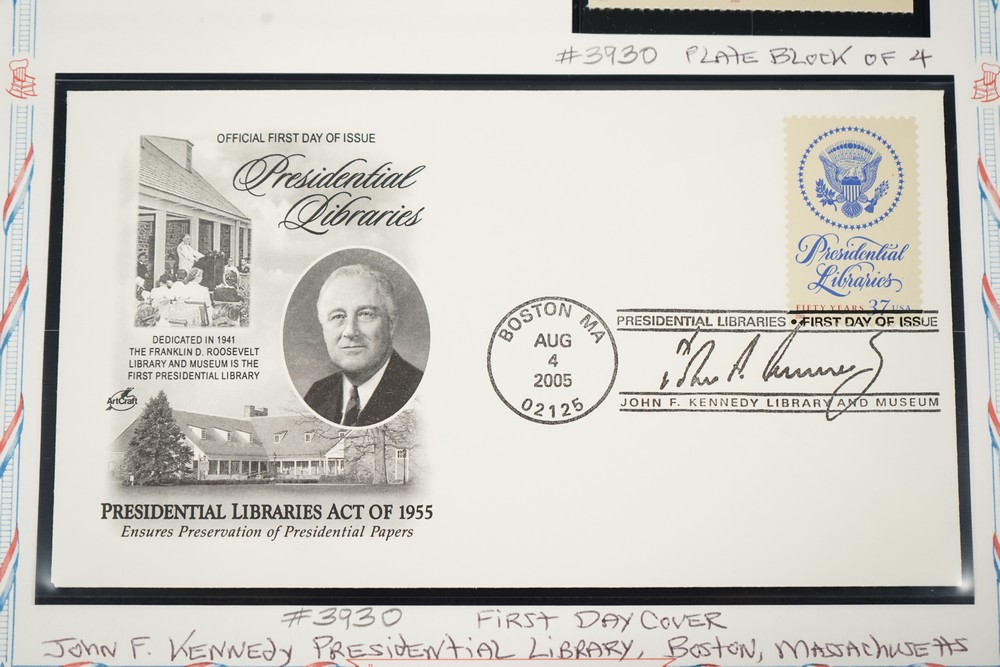 #3930 PLATE BLOCK OF 4
OFFICIAL FIRST DAY OF ISSUE
Presidential
Libraries
DEDICATED IN 1941
THE FRANKLIN D. ROOSEVELT
LIBRARY AND MUSEUM IS THE
FIRST PRESIDENTIAL LIBRARY
ArtCraft
PRESIDENTIAL LIBRARIES ACT OF 1955
Ensures Preservation of Presidential Papers
Presidential
Libraries
FIFTY YEARS 37 USA
BOSTON MA
AUG
4
2005
02125
PRESIDENTIAL LIBRARIES • FIRST DAY OF ISSUE
JOHN F. KENNEDY LIBRARY AND MUSEUM
#3930 FIRST DAY COVER
JOHN F. KENNEDY PRESIDENTIAL LIBRARY, BOSTON, MASSACHUSETTS